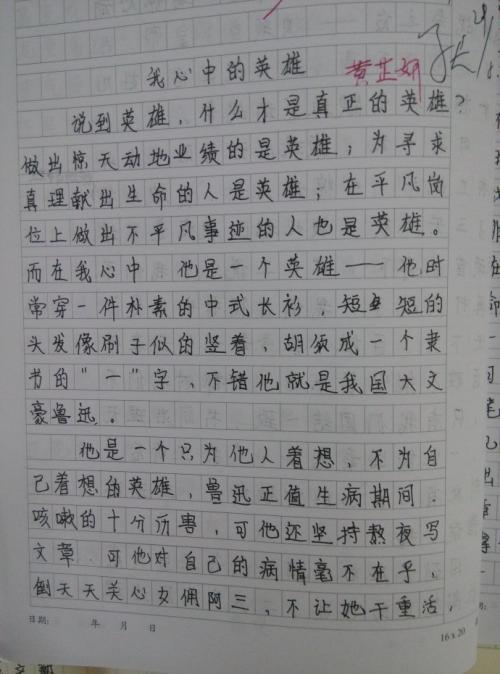 我心中的英雄
黄芷妍
说到英雄，什么才是真正的英雄？
做出惊天动地业绩的是英雄；为寻求
真理献出生命的人是英雄；在平凡岗
位上做出不平凡事迹的人也是英雄。
而在我心中，他是一个英雄——他时
常穿一件朴素的中式长衫，短短的
头发像刷子似的竖着，胡须成一个隶
书的"一"字，不错他就是我国大文
豪鲁迅。
他是一个只为他人着想，不为自
己着想的英雄，鲁迅正值生病期间，
咳嗽的十分厉害，可他还坚持熬夜写
文章．可他对自己的病情毫不在乎，
倒天天关心女佣阿三，不让她干重活，
日期： 年 月 日
16×20